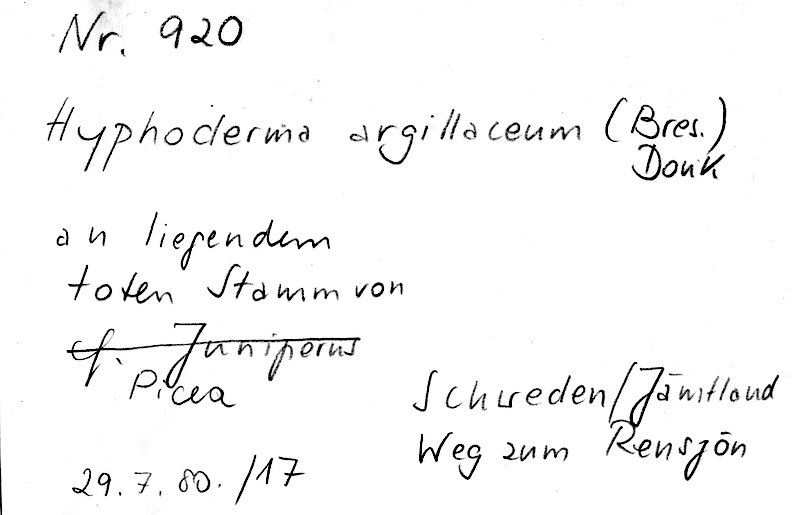 Nr. 920
Hyphoderma argillaceum (Bres.)
Donk
an liegendem
toten Stamm von
cf. Juniperus
Picea
Schweden/Jämtland
Weg zum Rensjön
29.7.80./17